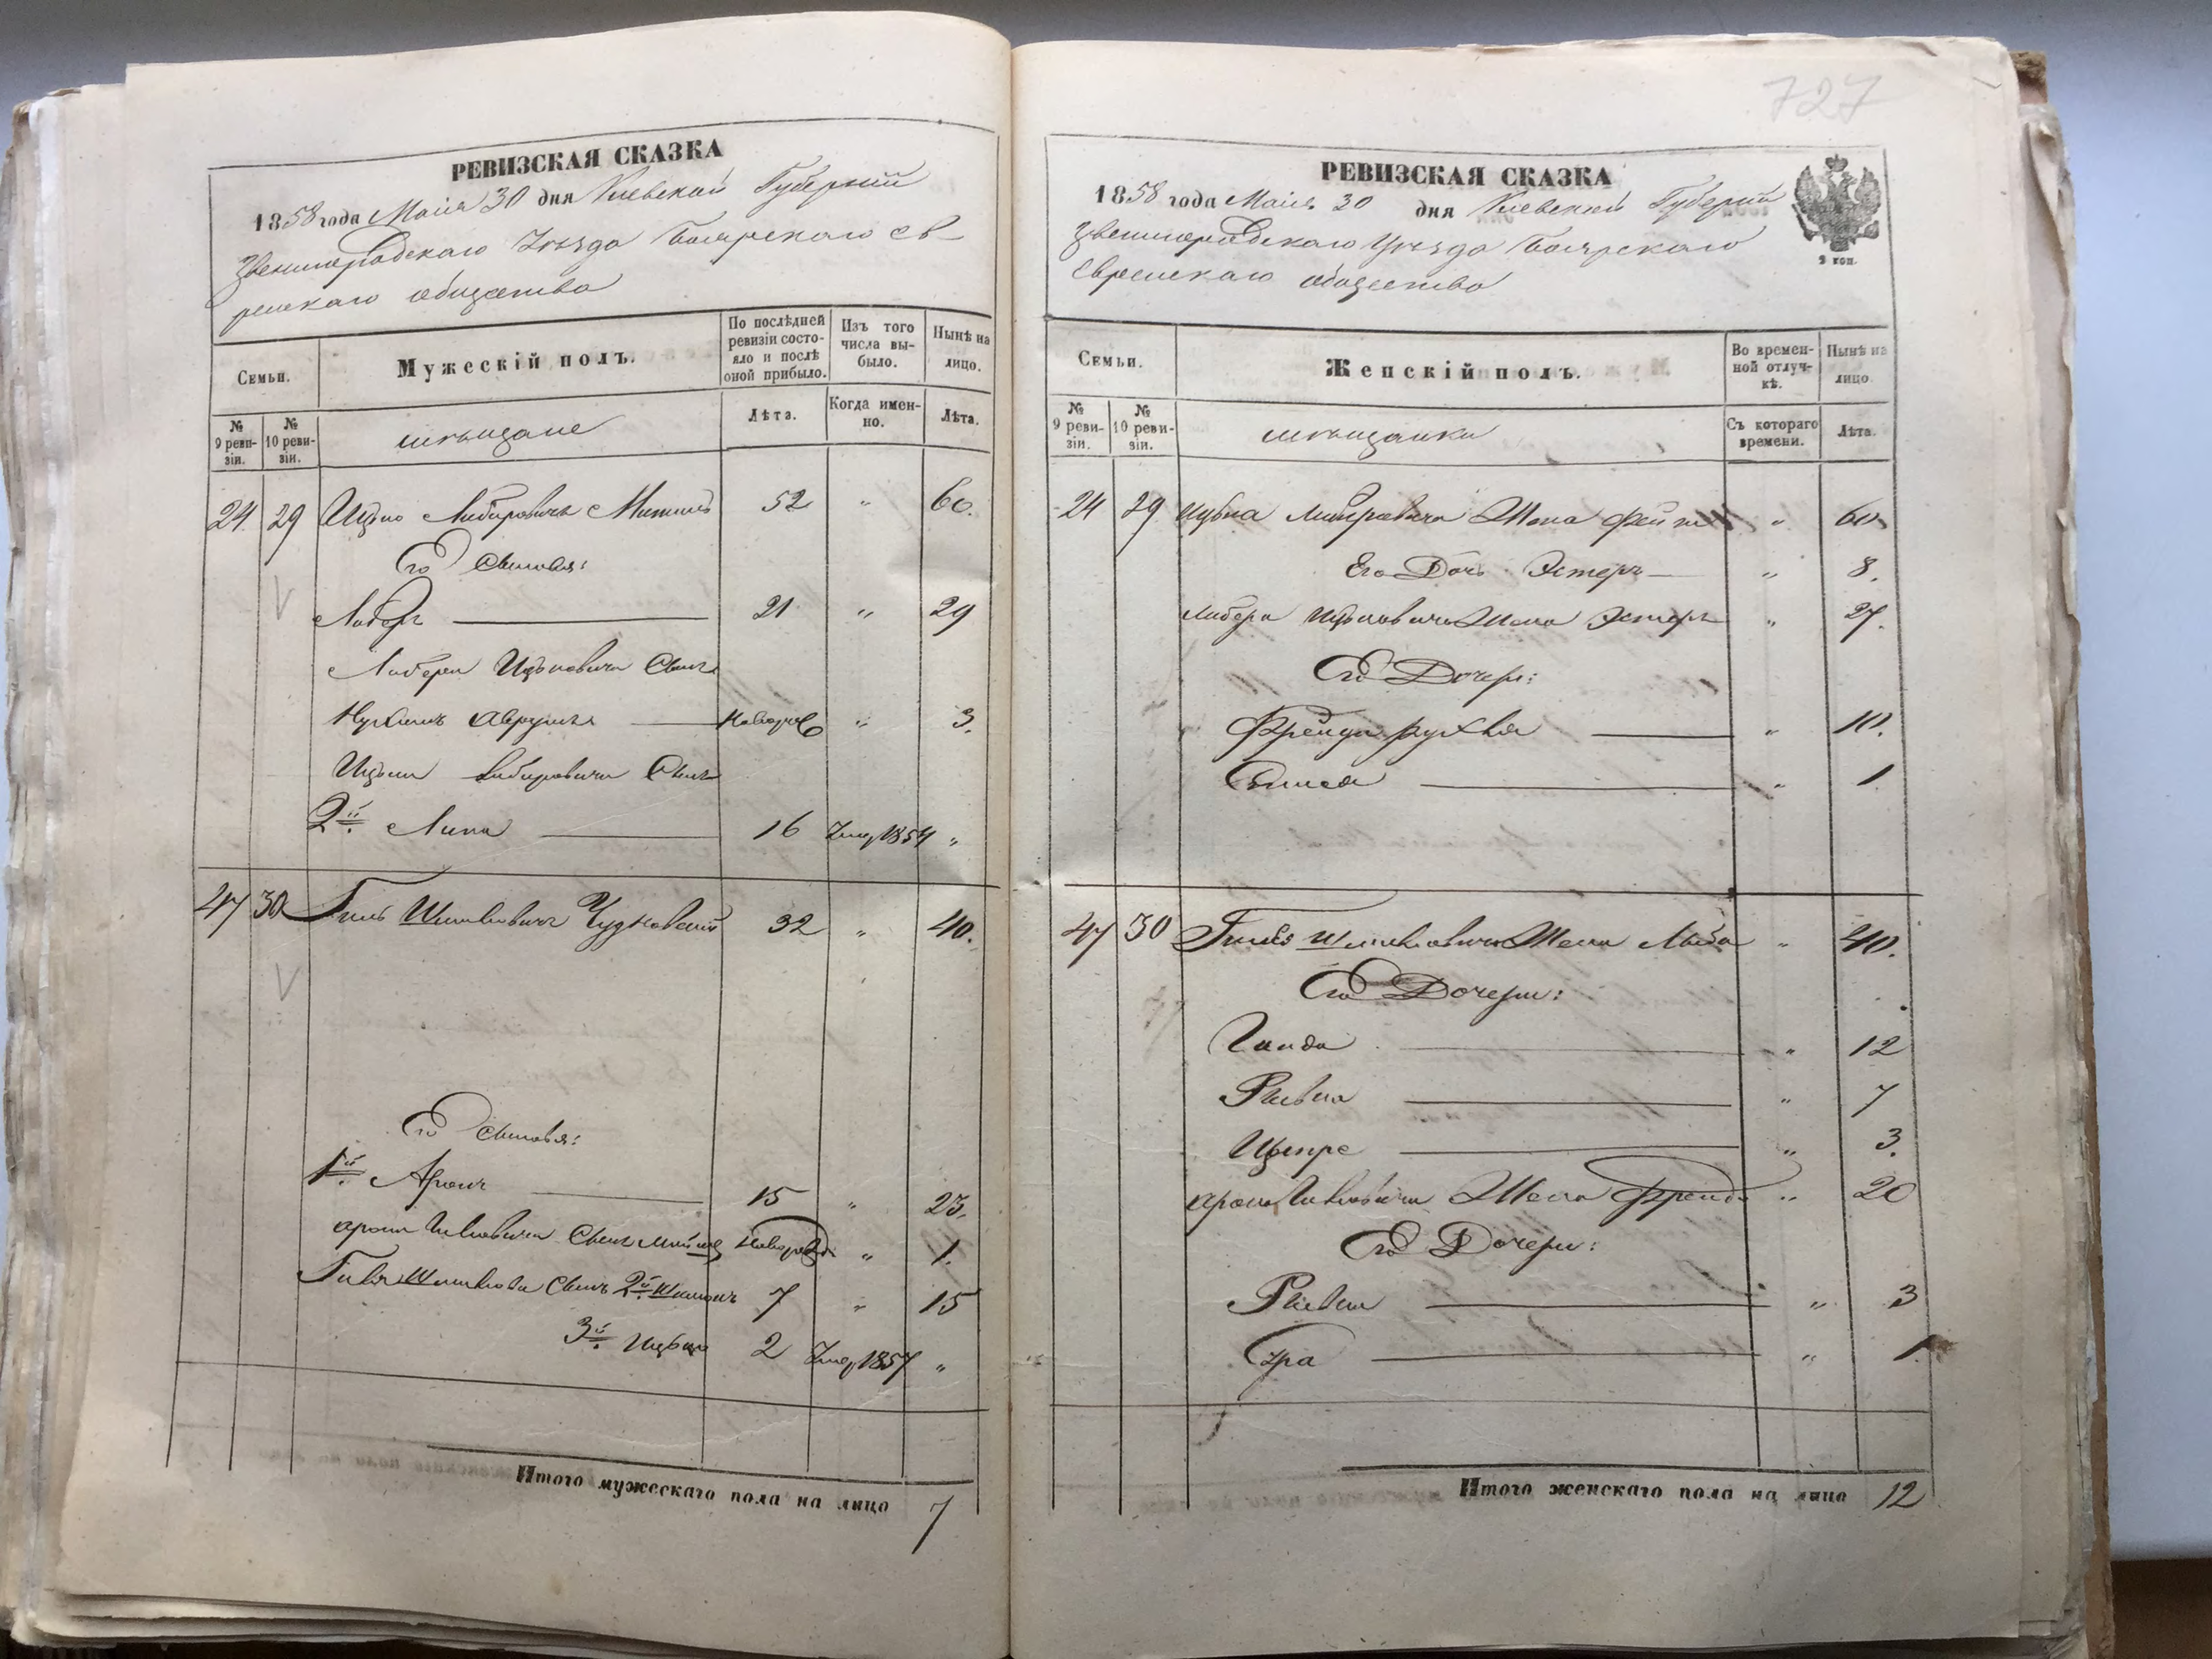 РЕВИЗСКАЯ СКАЗКА
1858 года Маія 30 дня Киевской Губерніи
Звенигородскаго Уѣзда Боярскаго Ев-
рейскаго общества
Семьи.
Мужескій полъ.
По послѣдней ревизіи состояло и послѣ оной прибыло.
Изъ того числа выбыло.
Нынѣ на лицо.
№ 9 ревизіи.
№ 10 ревизіи.
мѣщане
Лѣта.
Когда именно.
Лѣта.
24 29 Ицко Либеровичъ 52 " 60.
Его сыновья:
Либеръ 21 " 29
Либера Ицковича Сынъ
Нухимъ Аврумъ Новорож " 3.
Ицька Либеровича Сынъ
2й Липа 16 Умер 1854 "
47 30 Гиль Шмилевичъ Чудновскій 32 " 40.
Его сыновья:
1й Аронъ 15 " 23.
Арона Гилевича Сынъ Новорож " 1.
Гиля Шмилева Сынъ 2й Шимонъ 7 " 15
3й Ицько 2 Умер 1857 "
Итого мужескаго пола на лицо 7
727
РЕВИЗСКАЯ СКАЗКА
1858 года Маія 30 дня Киевской Губерніи
Звенигородскаго Уѣзда Боярскаго
Еврейскаго общества
9 коп.
Семьи.
Женскій полъ.
Во временной отлучкѣ.
Нынѣ на лицо
№ 9 ревизіи.
№ 10 ревизіи.
мѣщанки
Съ котораго времени.
Лѣта.
24 29 Ицька Либеровича Жена Фейга " 60
Его Дочь Эстеръ " 8.
Либера Ицковича Жена Эстеръ " 27.
Его Дочери:
Фрейда Рухля " 10.
" 1
47 30 Гиля Шмилевича Жена Люба " 40.
Его Дочери:
Ганда " 12
Ривка " 7
Ципре " 3.
Арона Гилевича Жена Фрейда " 20
Его Дочери:
Ривка " 3
Сура " 1
Итого женскаго пола на лицо 12